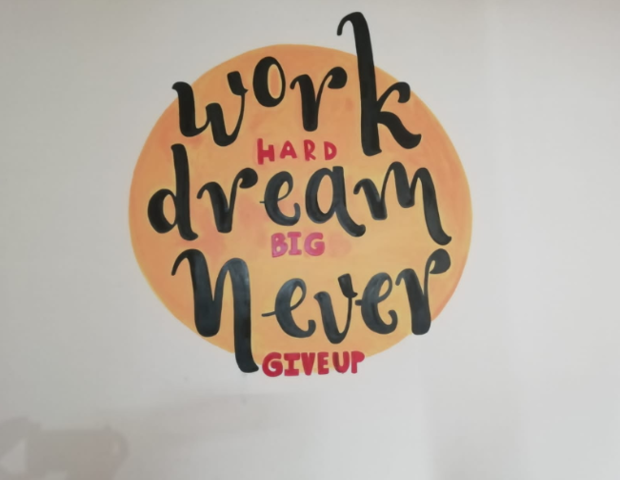 work
HARD
dream
BIG
Never
GIVE UP